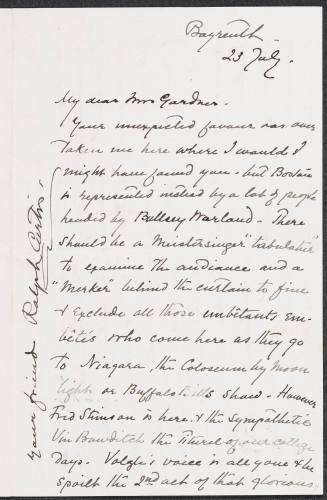 Bayreuth -
23 July.
My dear Mrs Gardner -
Your unexpected favour has over
taken me here where I would I
might have found you - but Boston
is represented instead by a lot of people
headed by Warland - There
should be a Meistersinger "tabulatur"
to examine the audience and a
"Merker" behind the curtain to fine
& exclude all those embêtants em-
bêtés who come here as they go
to Niagara, the Coloseum by moon
light or Buffalo Bill's show - However
Fred Stimson is here, & the sympathetic
Vin Bowditch the Titurel of our college
days. Vologle's voice is all gone & he
spoilt the 2nd act of that glorious
your friend Ralph Curtis.